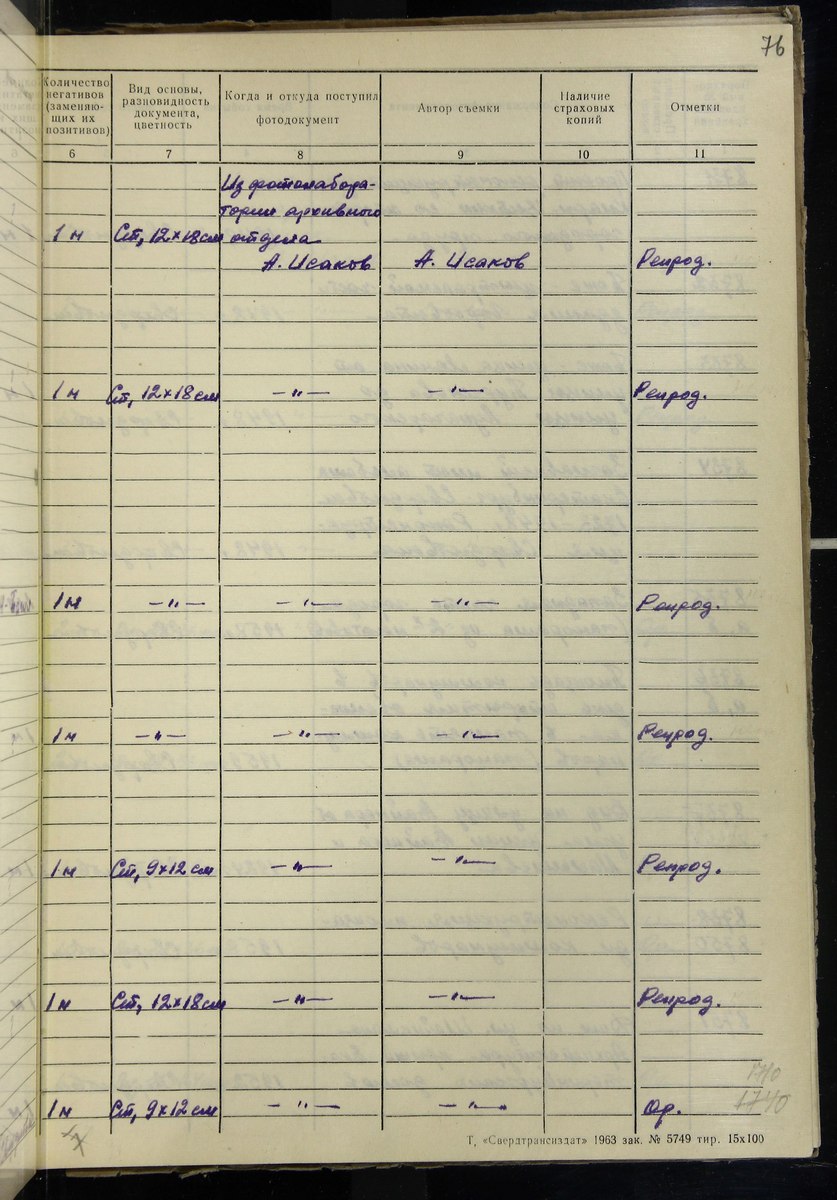 76
Количество негативов (заменяю- щих их позитивов) Вид основы, разновидность документа, цветность Когда и откуда поступил фотодокумент Автор съемки Наличие страховых копий Отметки
6 7 8 9 10 11
Из фотолабора-
тории архивного
1 н Ст, 12×18 см отдела
А. Исаков А. Исаков Репрод.
1 н Ст, 12×18 см —"— —"— Репрод.
1 н —"— —"— —"— Репрод.
1 н —"— —"— —"— Репрод.
1 н Ст, 9×12 см —"— —"— Репрод.
1 н Ст, 12×18 см —"— —"— Репрод.
1710
1 н Ст, 9×12 см —"— —"— Ор. 1740
Т. «Свердтрансиздат» 1963 зак. № 5749 тир. 15х100